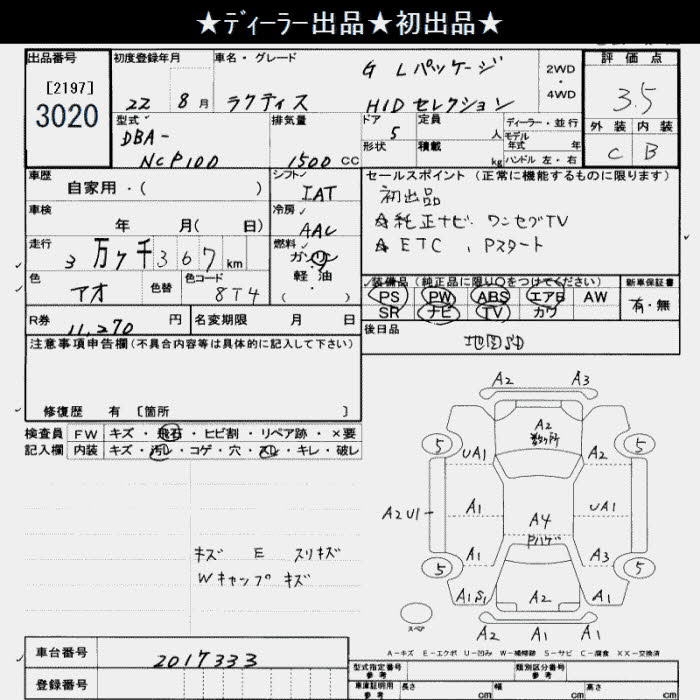 ★ﾃﾞｨｰﾗｰ出品★初出品★
出品番号
[2197]
3020
初度登録年月
22 8月
車名・グレード
ラクティス
G Lパッケージ
HIDセレクション
2WD
・
4WD
評価点
3.5
外装 内装
C B
型式
DBA-
NCP100
排気量
1500 CC
ドア
5
形状
定員
人
積載
kg
ディーラー・並行
モデル
年式 年
ハンドル 左・右
車歴
自家用・( )
シフト
IAT
車検
年 月( 日)
冷房
AAC
走行
3万7千367km
燃料
ガソリン
軽油
・( )
色
アオ
色替
色コード
8T4
R券
11,270 円
名変期限 月 日
セールスポイント (正常に機能するものに限ります)
初出品
☆純正ナビ ワンセグTV
☆ETC , Pスタート
装備品(純正品に限り○をつけてください)
PS PW ABS エアB AW
SR ナビ TV カワ
新車保証書
有・無
後日品
地図SD
注意事項申告欄(不具合内容等は具体的に記入して下さい)
修復歴 有 [箇所 ]
検査員
記入欄
FW キズ・飛石・ヒビ割・リペア跡・×要
内装 キズ・汚レ・コゲ・穴・スレ・キレ・破レ
キズ E スリキズ
Wキャップ キズ
A2 A3
A2
数ヶ所
5 5
UA1 A2
A2U1 A1 UA1
A4
Pハゲ
A1 A3
5 5
A1S1 A2 A1
スペア
A2 A1 A1
A-キズ E-エクボ U-凹み W-補修跡 S-サビ C-腐食 XX-交換済
車台番号
2017333
登録番号
型式指定番号
参考
類別区分番号
参考
車庫証明用
参考
長さ cm
幅 cm
高さ cm